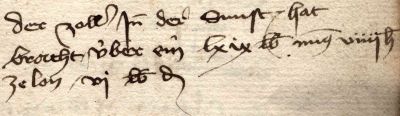 der zoll Jn der Sunst hat
brocht über ein lxix lb miñ viiij h
ze lon vi lb d